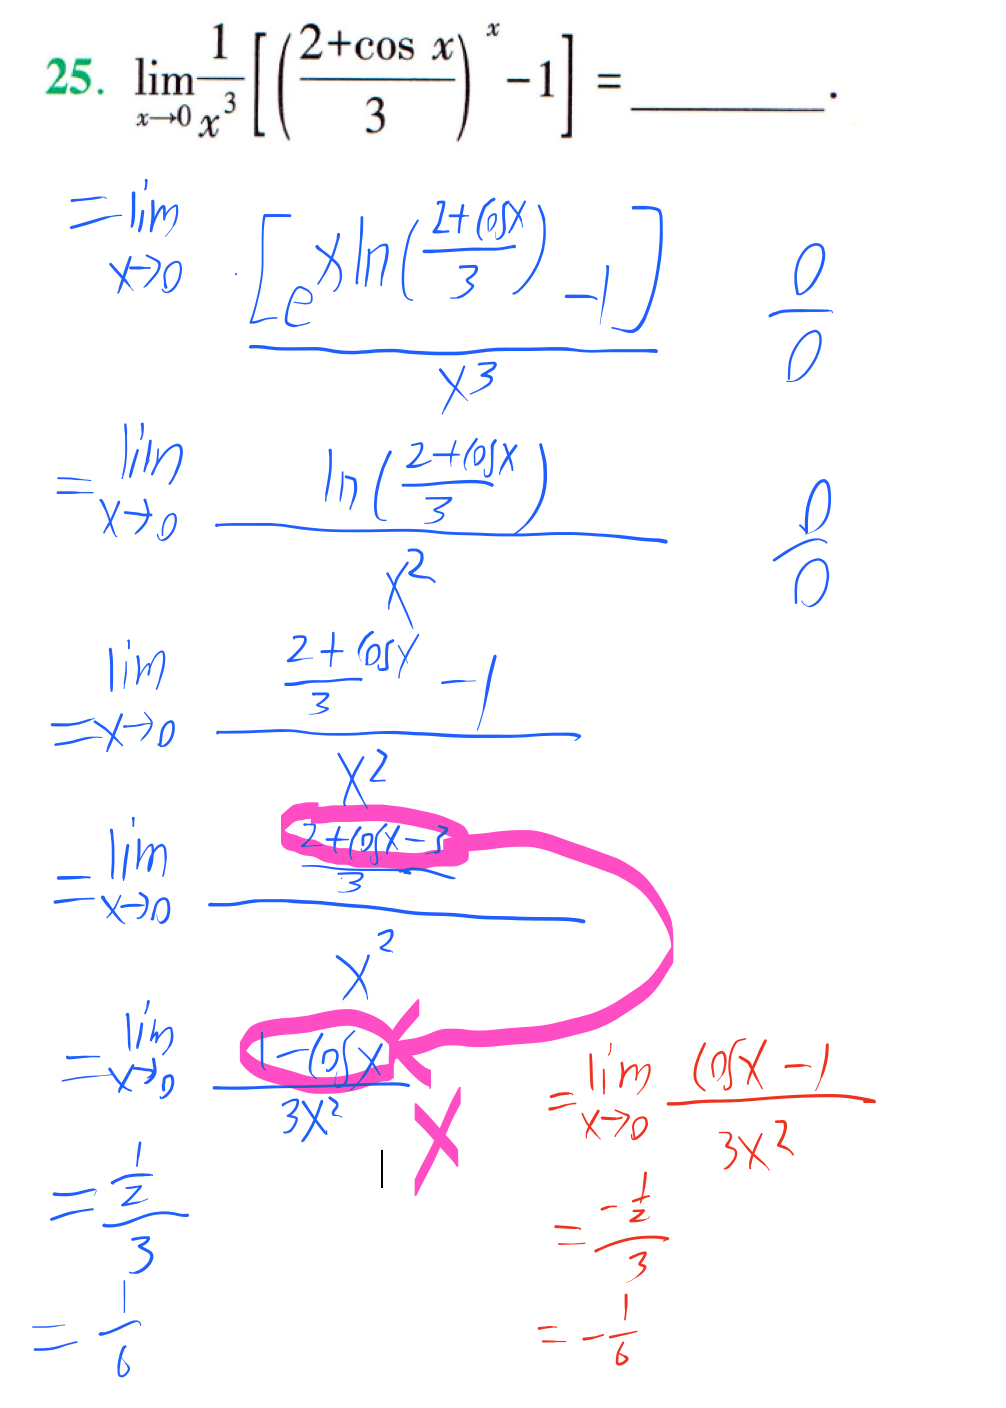 25. lim x→0 1/x³ [((2+cos x)/3)^x −1] = ________.
= lim x→0 [e^(x ln((2+cosx)/3)) −1] / x³  0/0
= lim x→0 ln((2+cosx)/3) / x²  0/0
= lim x→0 ((2+cosx)/3 −1) / x²
= lim x→0 ((2+cosx−3)/3) / x²
= lim x→0 (1−cosx) / 3x²
X
= (1/2)/3
= 1/6
= lim x→0 (cosx −1) / 3x²
= (−1/2)/3
= −1/6